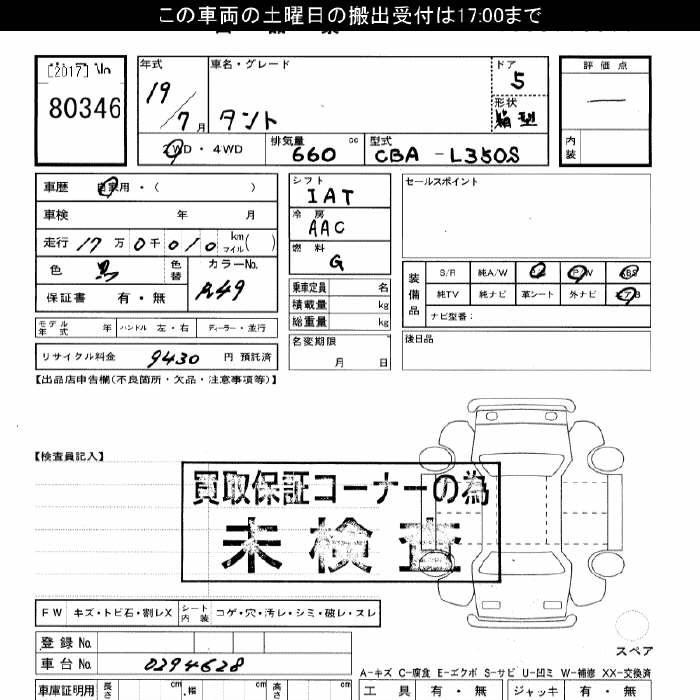 この車両の土曜日の搬出受付は17:00まで
[2017] No
80346
年式
19/7月
車名・グレード
タント
ドア
5
形状
箱型
評価点
—
内装
2WD・4WD
排気量
660 cc
型式
CBA-L350S
車歴 自家用・( )
車検 年 月
走行 17万0千010 km マイル( )
色 黒
色替
カラーNo.
A49
保証書 有・無
シフト
IAT
冷房
AAC
燃料
G
乗車定員 名
積載量 kg
総重量 kg
セールスポイント
装備品
S/R 純A/W P/S P/W ABS
純TV 純ナビ 革シート 外ナビ エアB
ナビ型番:
モデル年式 年 ハンドル 左・右 ディーラー・並行
リサイクル料金 9430 円 預託済
名変期限
月 日
後日品
【出品店申告欄(不良箇所・欠品・注意事項等)】
【検査員記入】
買取保証コーナーの為
未検査
FW キズ・トビ石・割レX シート内装 コゲ・穴・汚レ・シミ・破レ・スレ
登録No.
車台No. 0294628
スペア
A-キズ C-腐食 E-エクボ S-サビ U-凹ミ W-補修 XX-交換済
車庫証明用 長さ cm 幅 cm 高さ cm
工具 有・無 ジャッキ 有・無